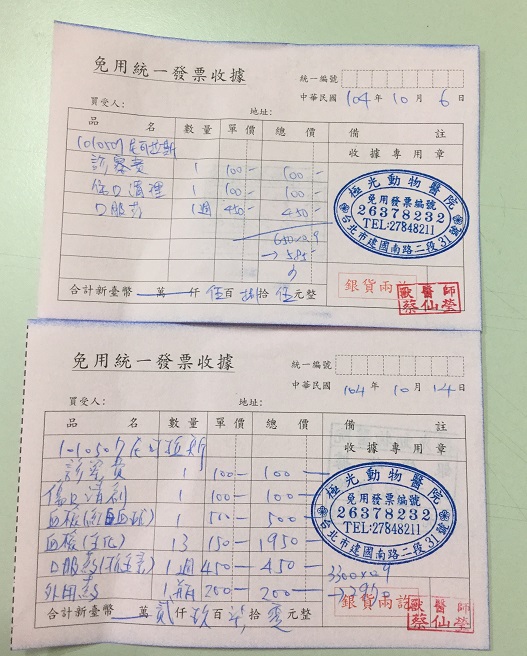 免用統一發票收據
統一編號
中華民國 104 年 10 月 6 日
買受人: 地址:
品名 數量 單價 總價 備註
收據專用章
診察費 1 100- 100-
傷口清理 1 100- 100-
口服藥 1週 450- 450-
650×0.9
→585
極光動物醫院
免用發票編號
26378232
TEL:27848211
台北市建國南路二段31號
銀貨兩訖
獸醫師
蔡仙瑩
合計新臺幣 萬 仟 伍百 捌拾 伍元整
免用統一發票收據
統一編號
中華民國 104 年 10 月 14 日
買受人: 地址:
品名 數量 單價 總價 備註
收據專用章
診察費 1 100- 100-
傷口清創 1 100- 100-
血檢(紅白血球) 1 500- 500-
血檢(生化) 13 150- 1950-
口服藥 1週 450- 450-
外用藥 1瓶 200- 200-
3300×0.9
→2970
極光動物醫院
免用發票編號
26378232
TEL:27848211
台北市建國南路二段31號
銀貨兩訖
獸醫師
蔡仙瑩
合計新臺幣 萬 貳仟 玖百 柒拾 零元整